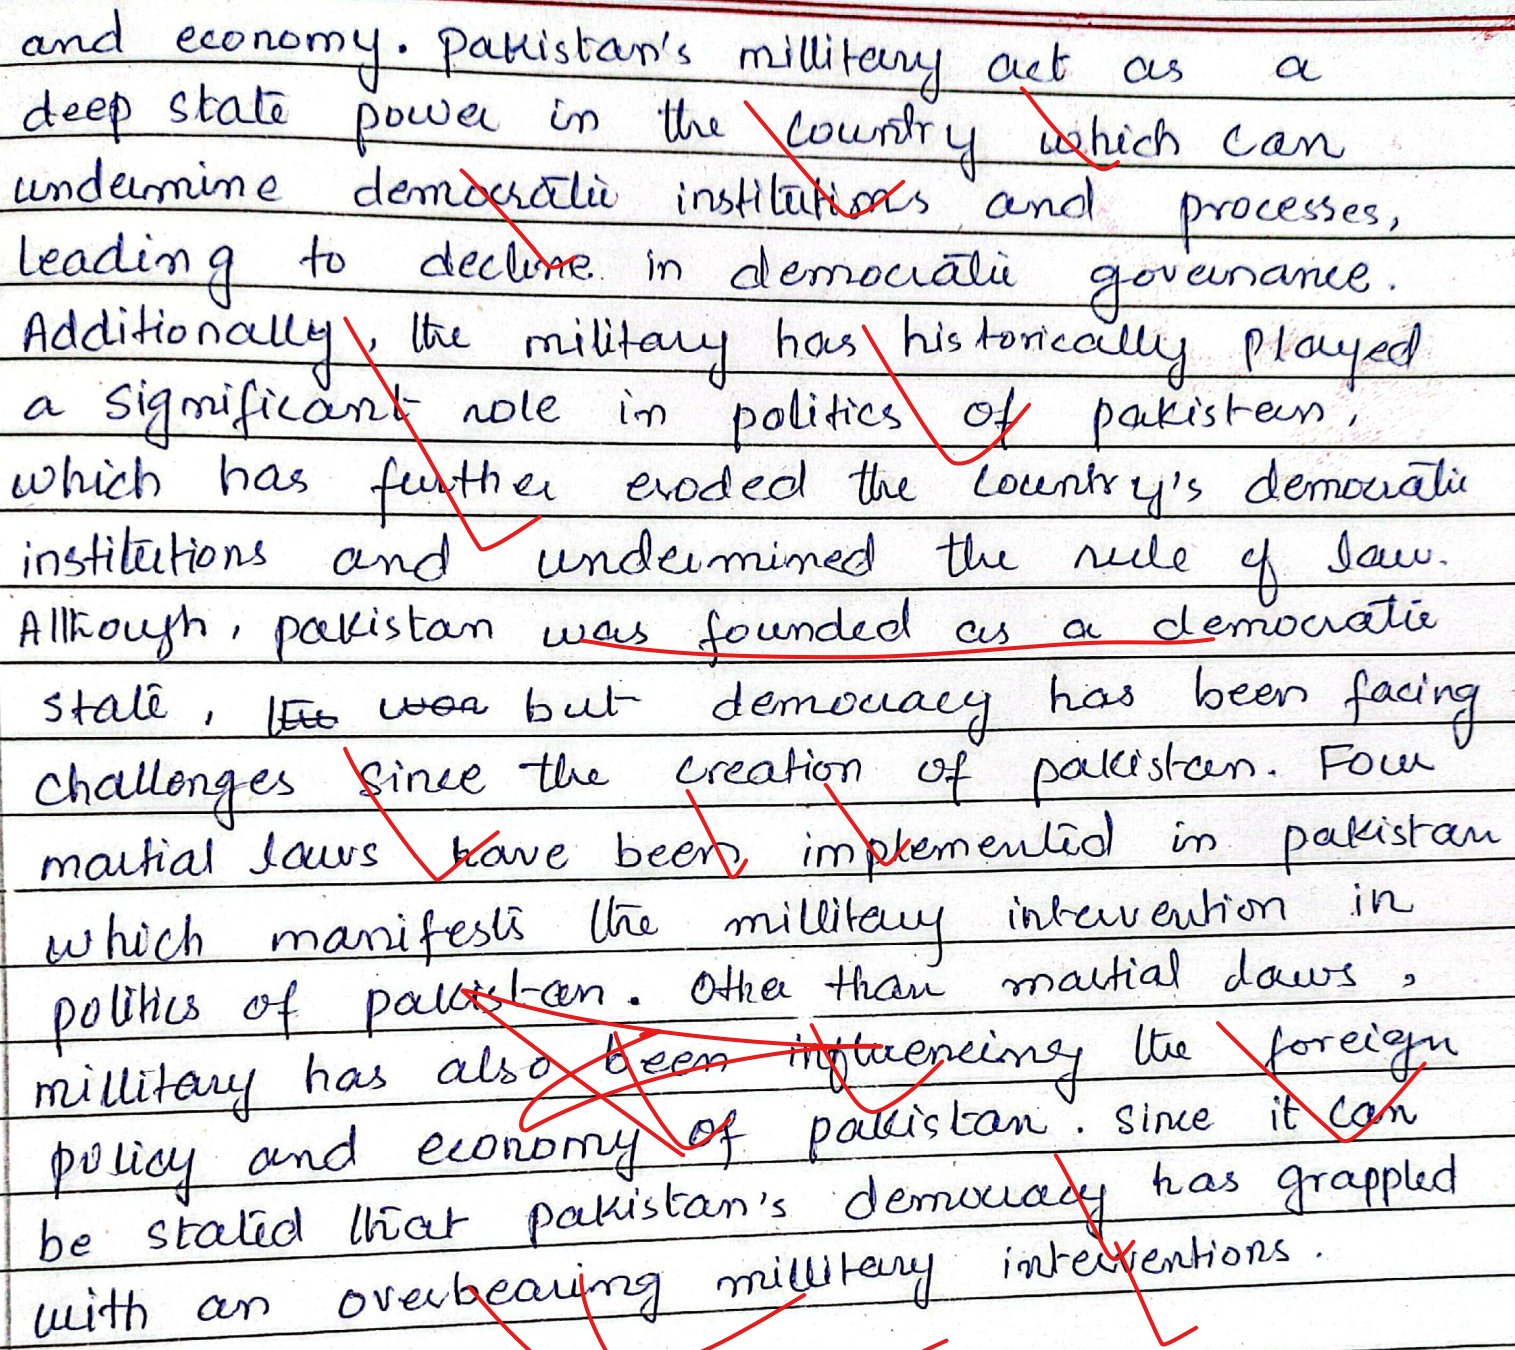 and economy. Pakistan's millitary act as a
deep state power in the country which can
undermine democratic institutions and processes,
leading to decline in democratic governance.
Additionally, the military has historically played
a significant role in politics of pakistan,
which has further eroded the country's democratic
institutions and undermined the rule of law.
Although, pakistan was founded as a democratic
state, but democracy has been facing
challenges since the creation of pakistan. Four
martial laws have been implemented in pakistan
which manifests the millitary intervention in
politics of pakistan. Other than martial laws,
millitary has also been influencing the foreign
policy and economy of pakistan. Since it can
be stated that pakistan's democracy has grappled
with an overbearing millitary interventions.